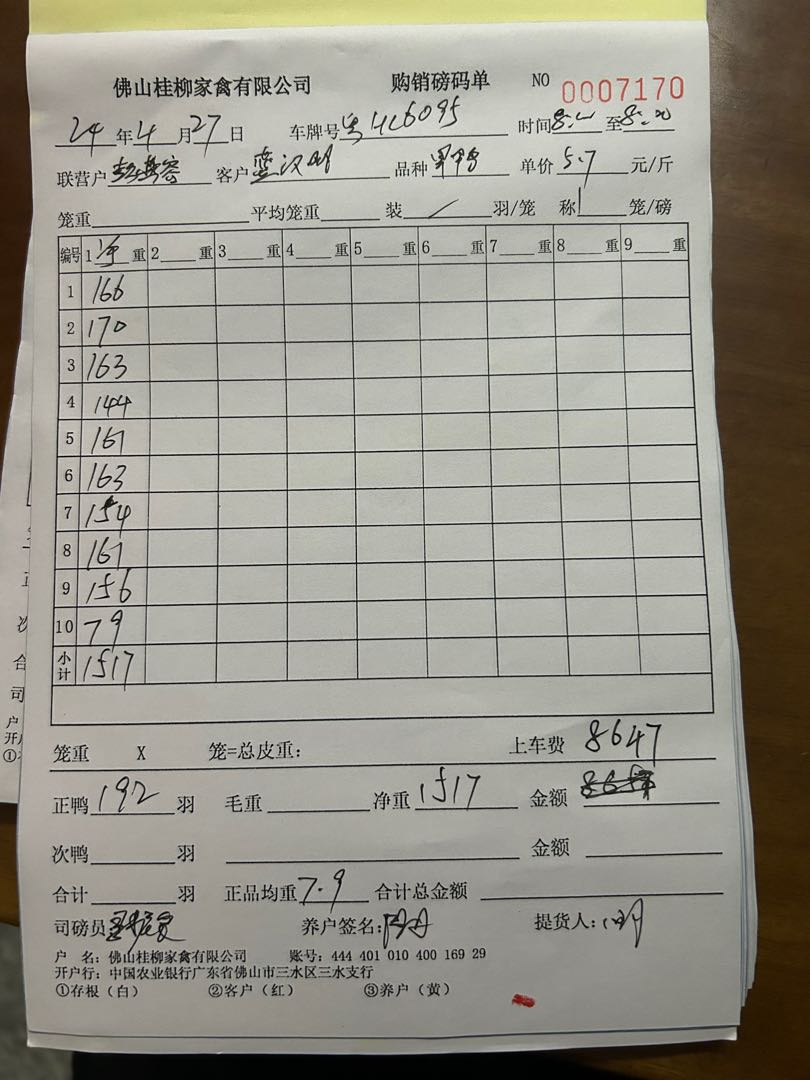 佛山桂柳家禽有限公司 购销磅码单 NO 0007170
24年4月27日 车牌号 H26095 时间 至
联营户 客户 品种 单价5.7元/斤
笼重 平均笼重 装/羽/笼 称1笼/磅
编号 1净重 2重 3重 4重 5重 6重 7重 8重 9重
1 166
2 170
3 163
4 144
5 161
6 163
7 154
8 161
9 156
10 79
小计 1517
笼重 X 笼=总皮重: 上车费 8647
正鸭192羽 毛重 净重1517 金额
次鸭 羽 金额
合计 羽 正品均重7.9 合计总金额
司磅员 养户签名: 提货人:
户 名: 佛山桂柳家禽有限公司 账号: 444 401 010 400 169 29
开户行: 中国农业银行广东省佛山市三水区三水支行
①存根(白) ②客户(红) ③养户(黄)